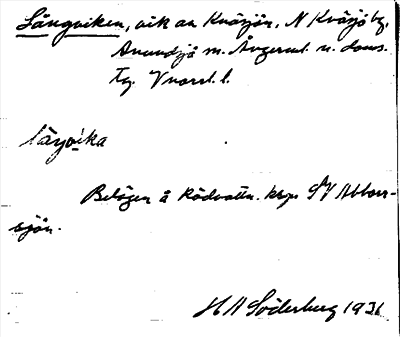 Långviken, vik av Kvärjön, N Kvärjö by,
Anundsjö sn. Ångermanl. n. doms.
Tg. Vnorrl. l.
låŋvika
Belägen å Rödvattn. krpr SV Abborr-
sjön.
H A Söderberg 1936